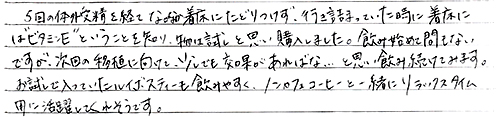 5回の体外受精を経てなお着床にたどりつけず、行き詰まっていた時に着床に
は"ビタミンE"ということを知り、物は試しと思い購入しました。飲み始めて間もない
ですが、次回の移植に向けて少しでも効果があればな…と思い飲み続けてみます。
お試しで入っていたルイボスティーも飲みやすく、ノンカフェコーヒーと一緒にリラックスタイム
用に活躍してくれそうです。